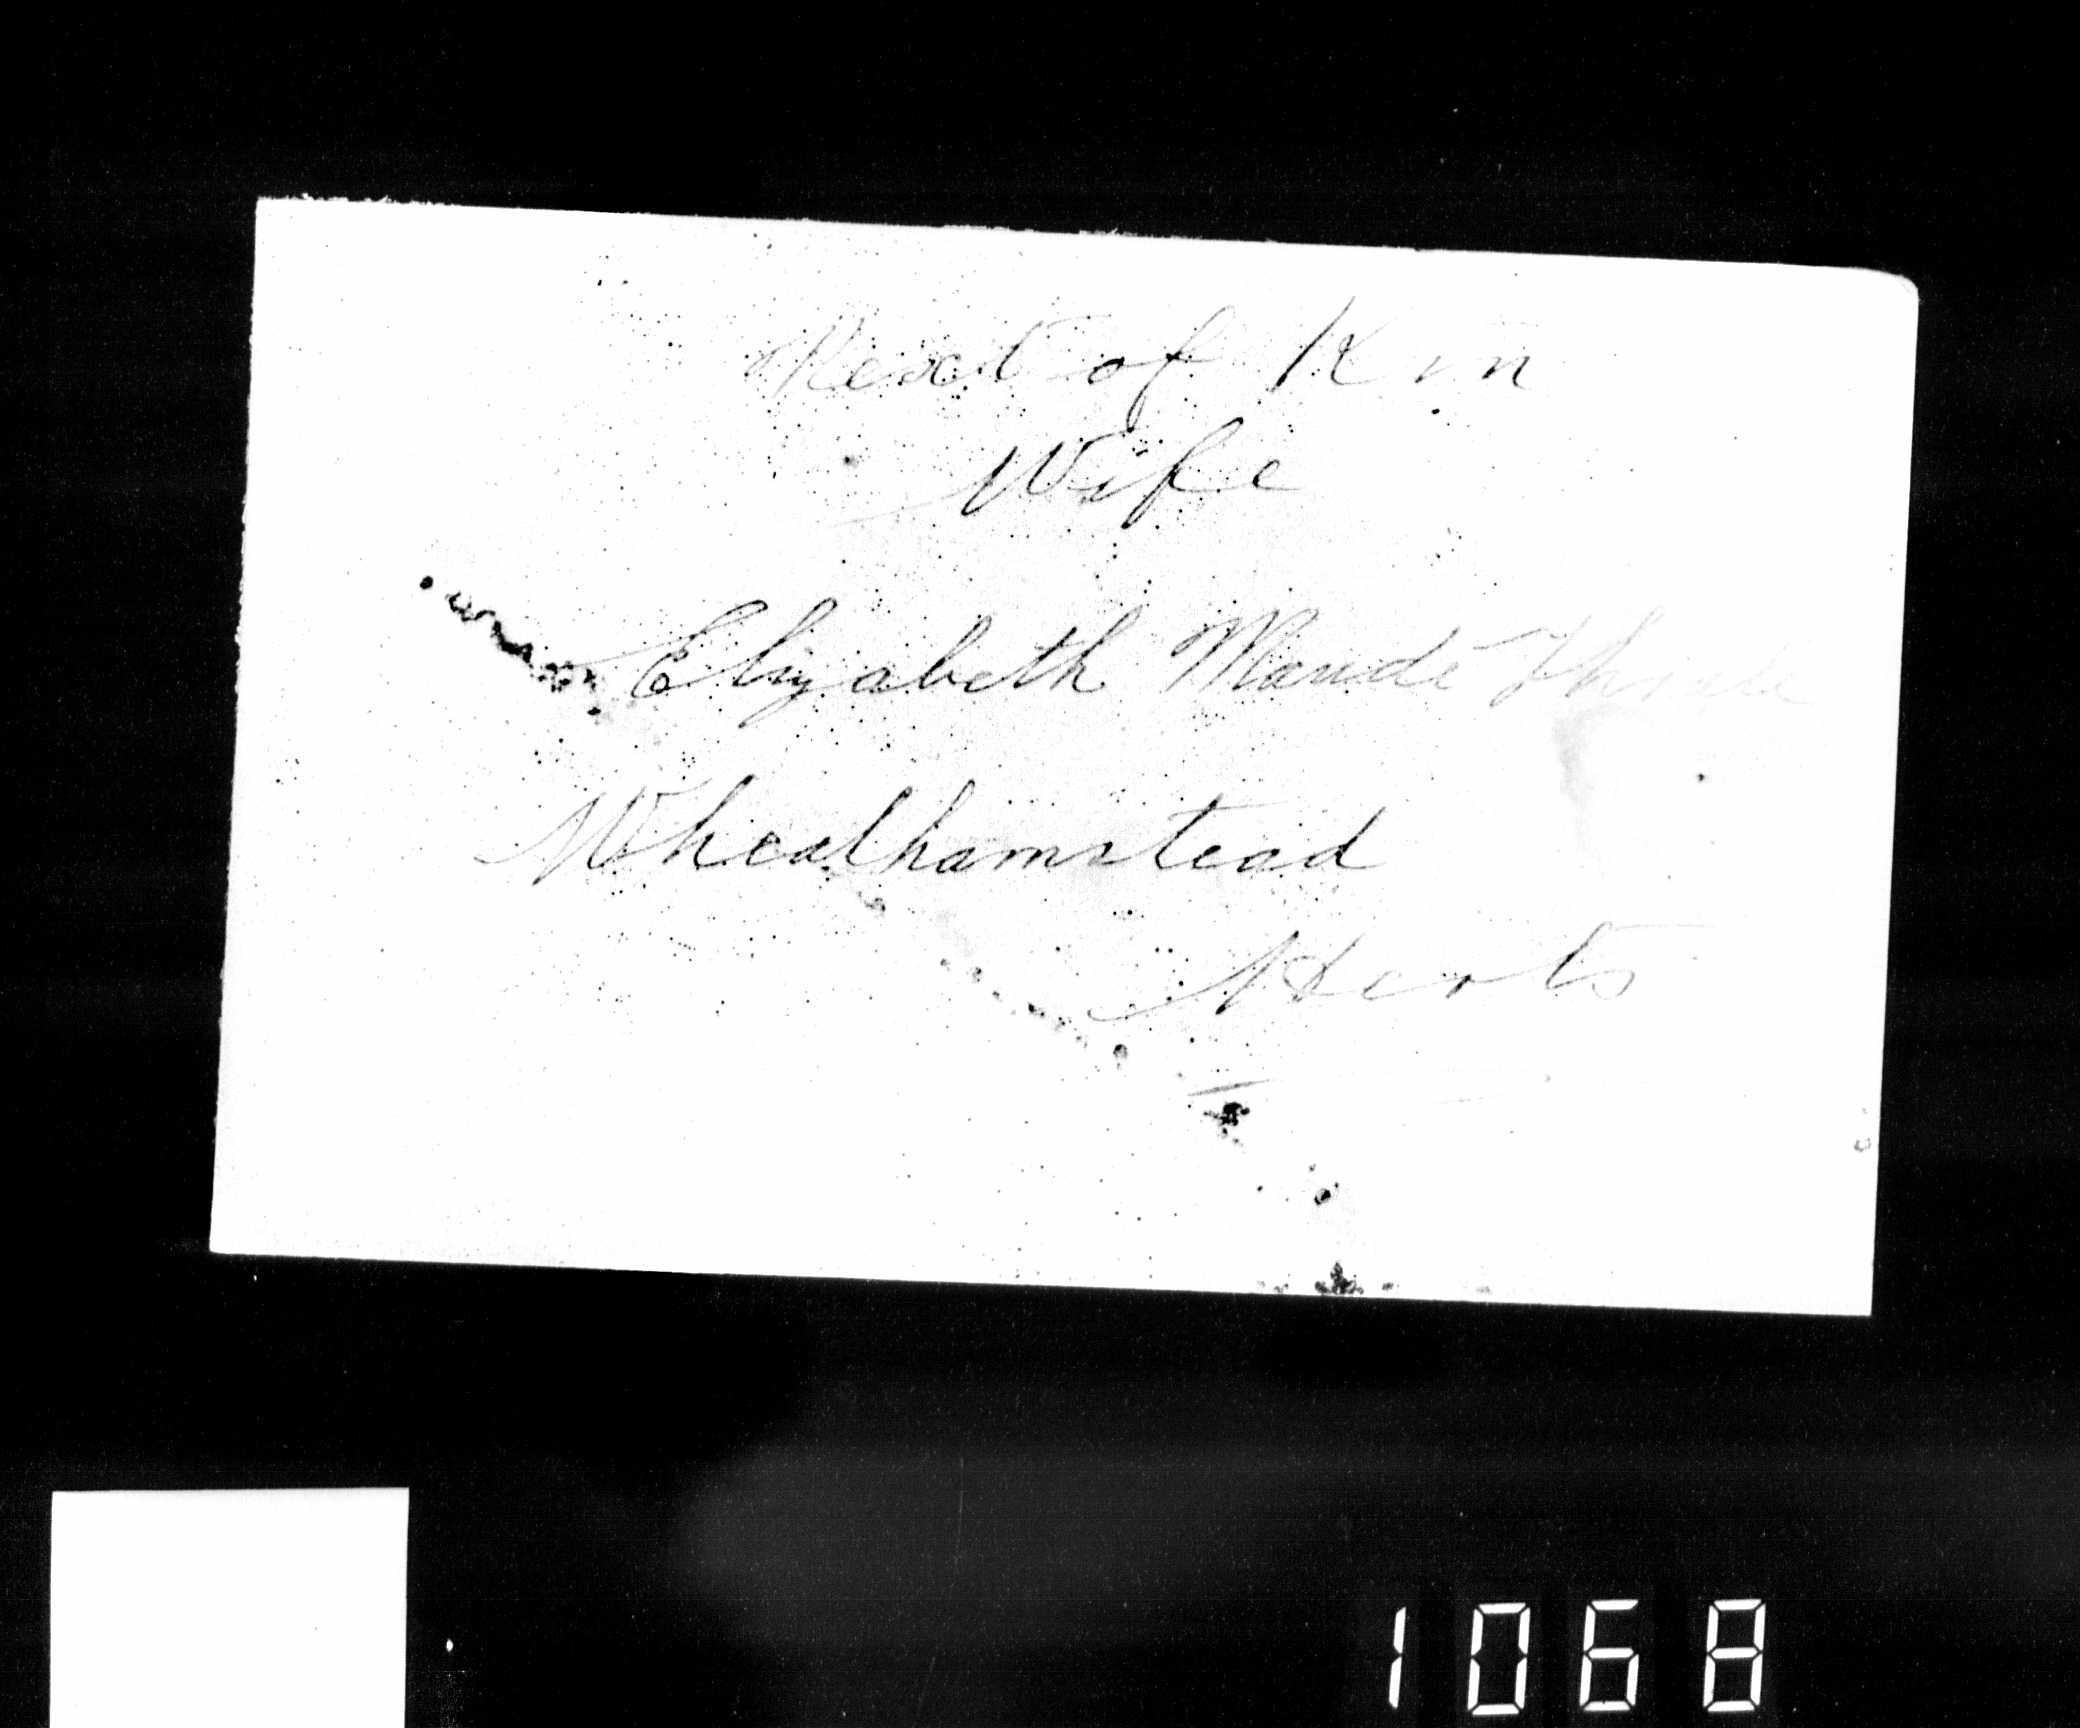 Next of Kin
Wife
Elizabeth Maude
Wheathamstead
Herts
1068